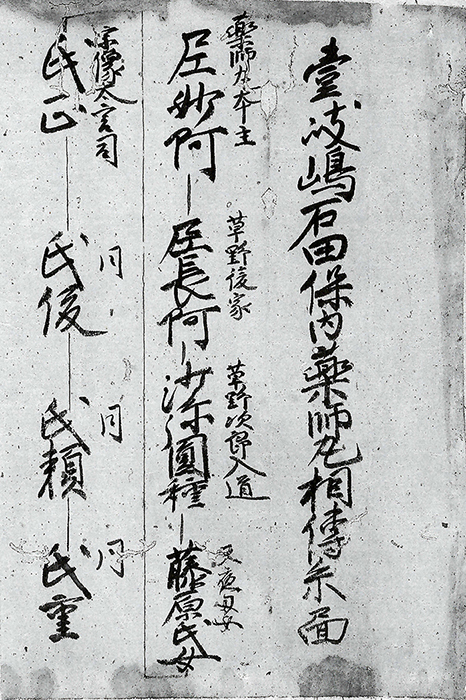 壹岐嶋石田保内薬師丸相傳系圖
薬師丸本主
尼妙阿
草野後家
尼長阿
草野次郎入道
沙弥圓種
藤原氏女
宗像大宮司
氏正
同
氏俊
同
氏頼
同
氏重